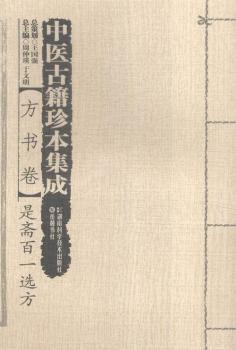 中医古籍珍本集成
总策划○王国强
总主编○周仲瑛 于文明
【方书卷】
是斋百一选方
湖南科学技术出版社
岳麓书社